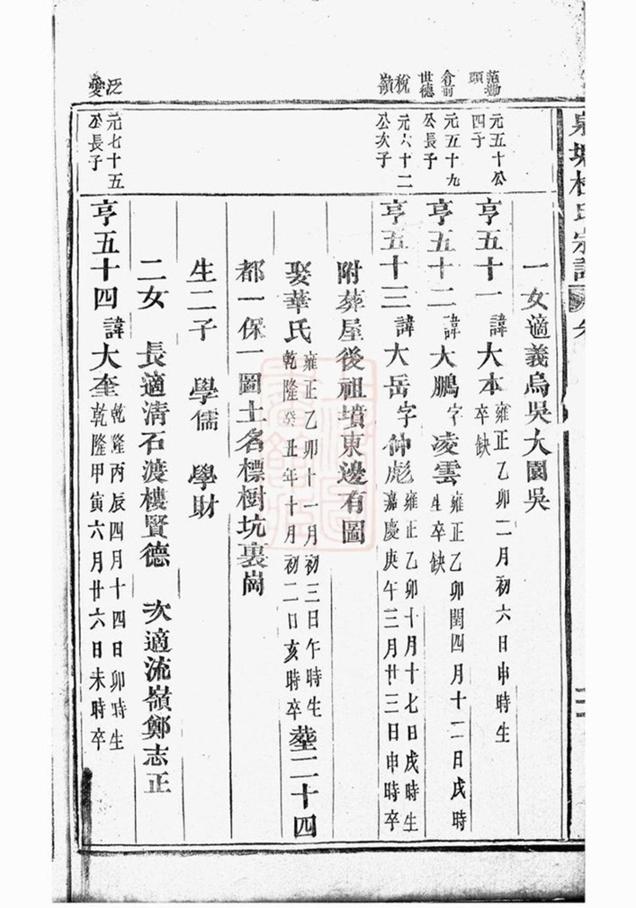 泉塘杜氏宗譜
一女適義烏吳大園吳
元五十公四子
亨五十一 諱大本 雍正乙卯二月初六日申時生 卒缺
世德
元五十九公長子
亨五十二 諱大鵬 字凌雲 雍正乙卯閏四月十二日戌時生 卒缺
稅嶺
元六十二公次子
亨五十三 諱大岳 字仲彪 雍正乙卯十月十七日戌時生 嘉慶庚午三月廿三日申時卒
附葬屋後祖墳東邊有圖
娶華氏 雍正乙卯十一月初三日午時生 乾隆癸丑年十月初二日亥時卒 塟二十四
都一保一圖土名標樹坑裏崗
生二子 學儒 學財
二女 長適清石渡樓賢德 次適流嶺鄭志正
泛愛
元七十五公長子
亨五十四 諱大奎 乾隆丙辰四月十四日卯時生 乾隆甲寅六月廿六日未時卒